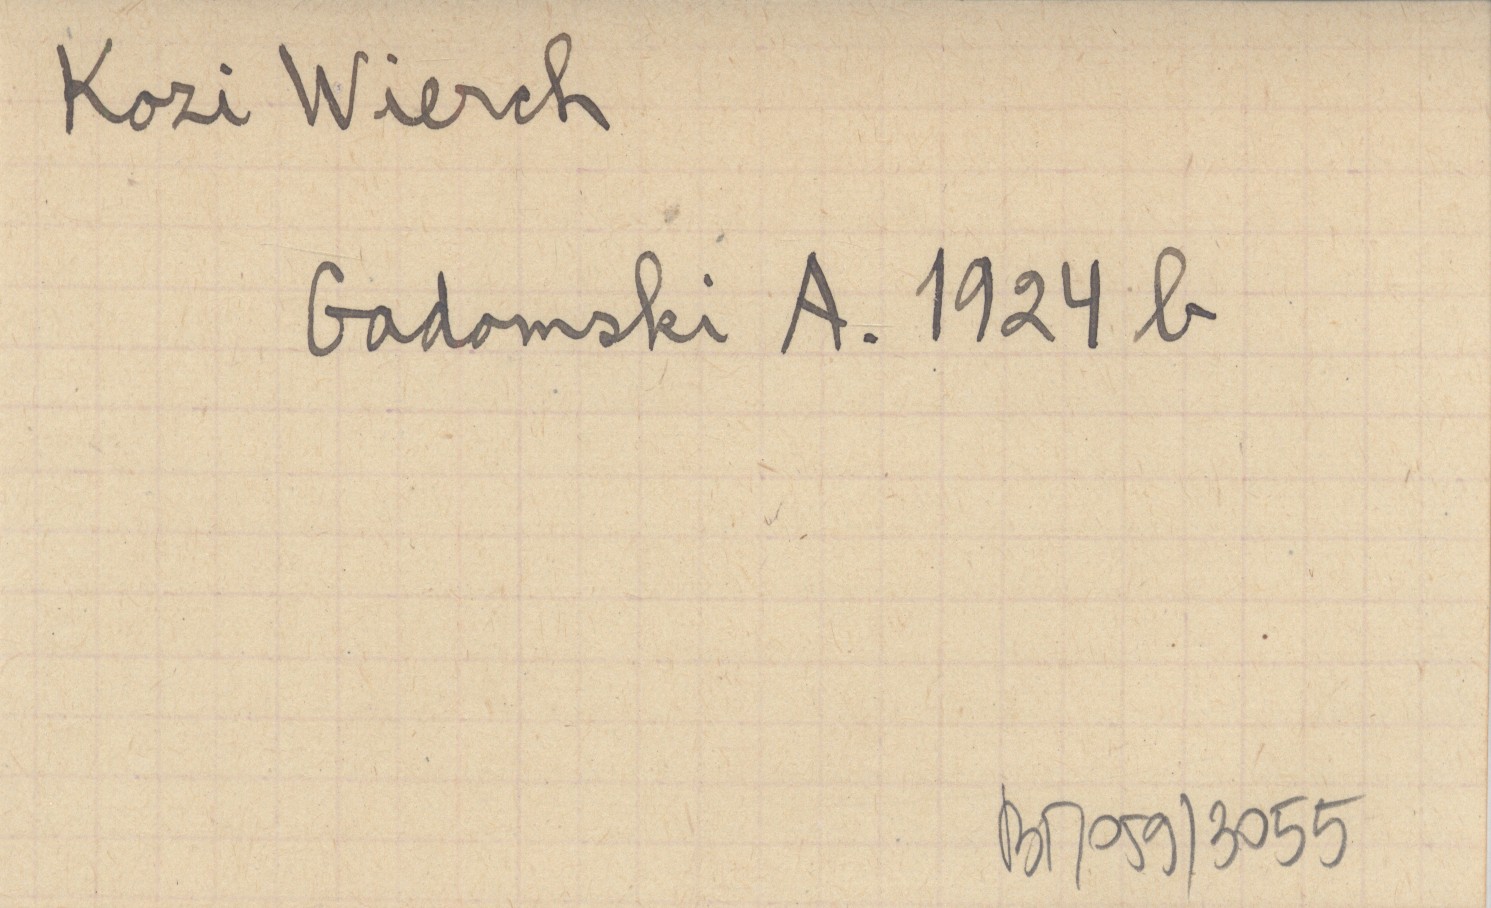 Kozi Wierch
Gadomski A. 1924 b
BT/059/3055